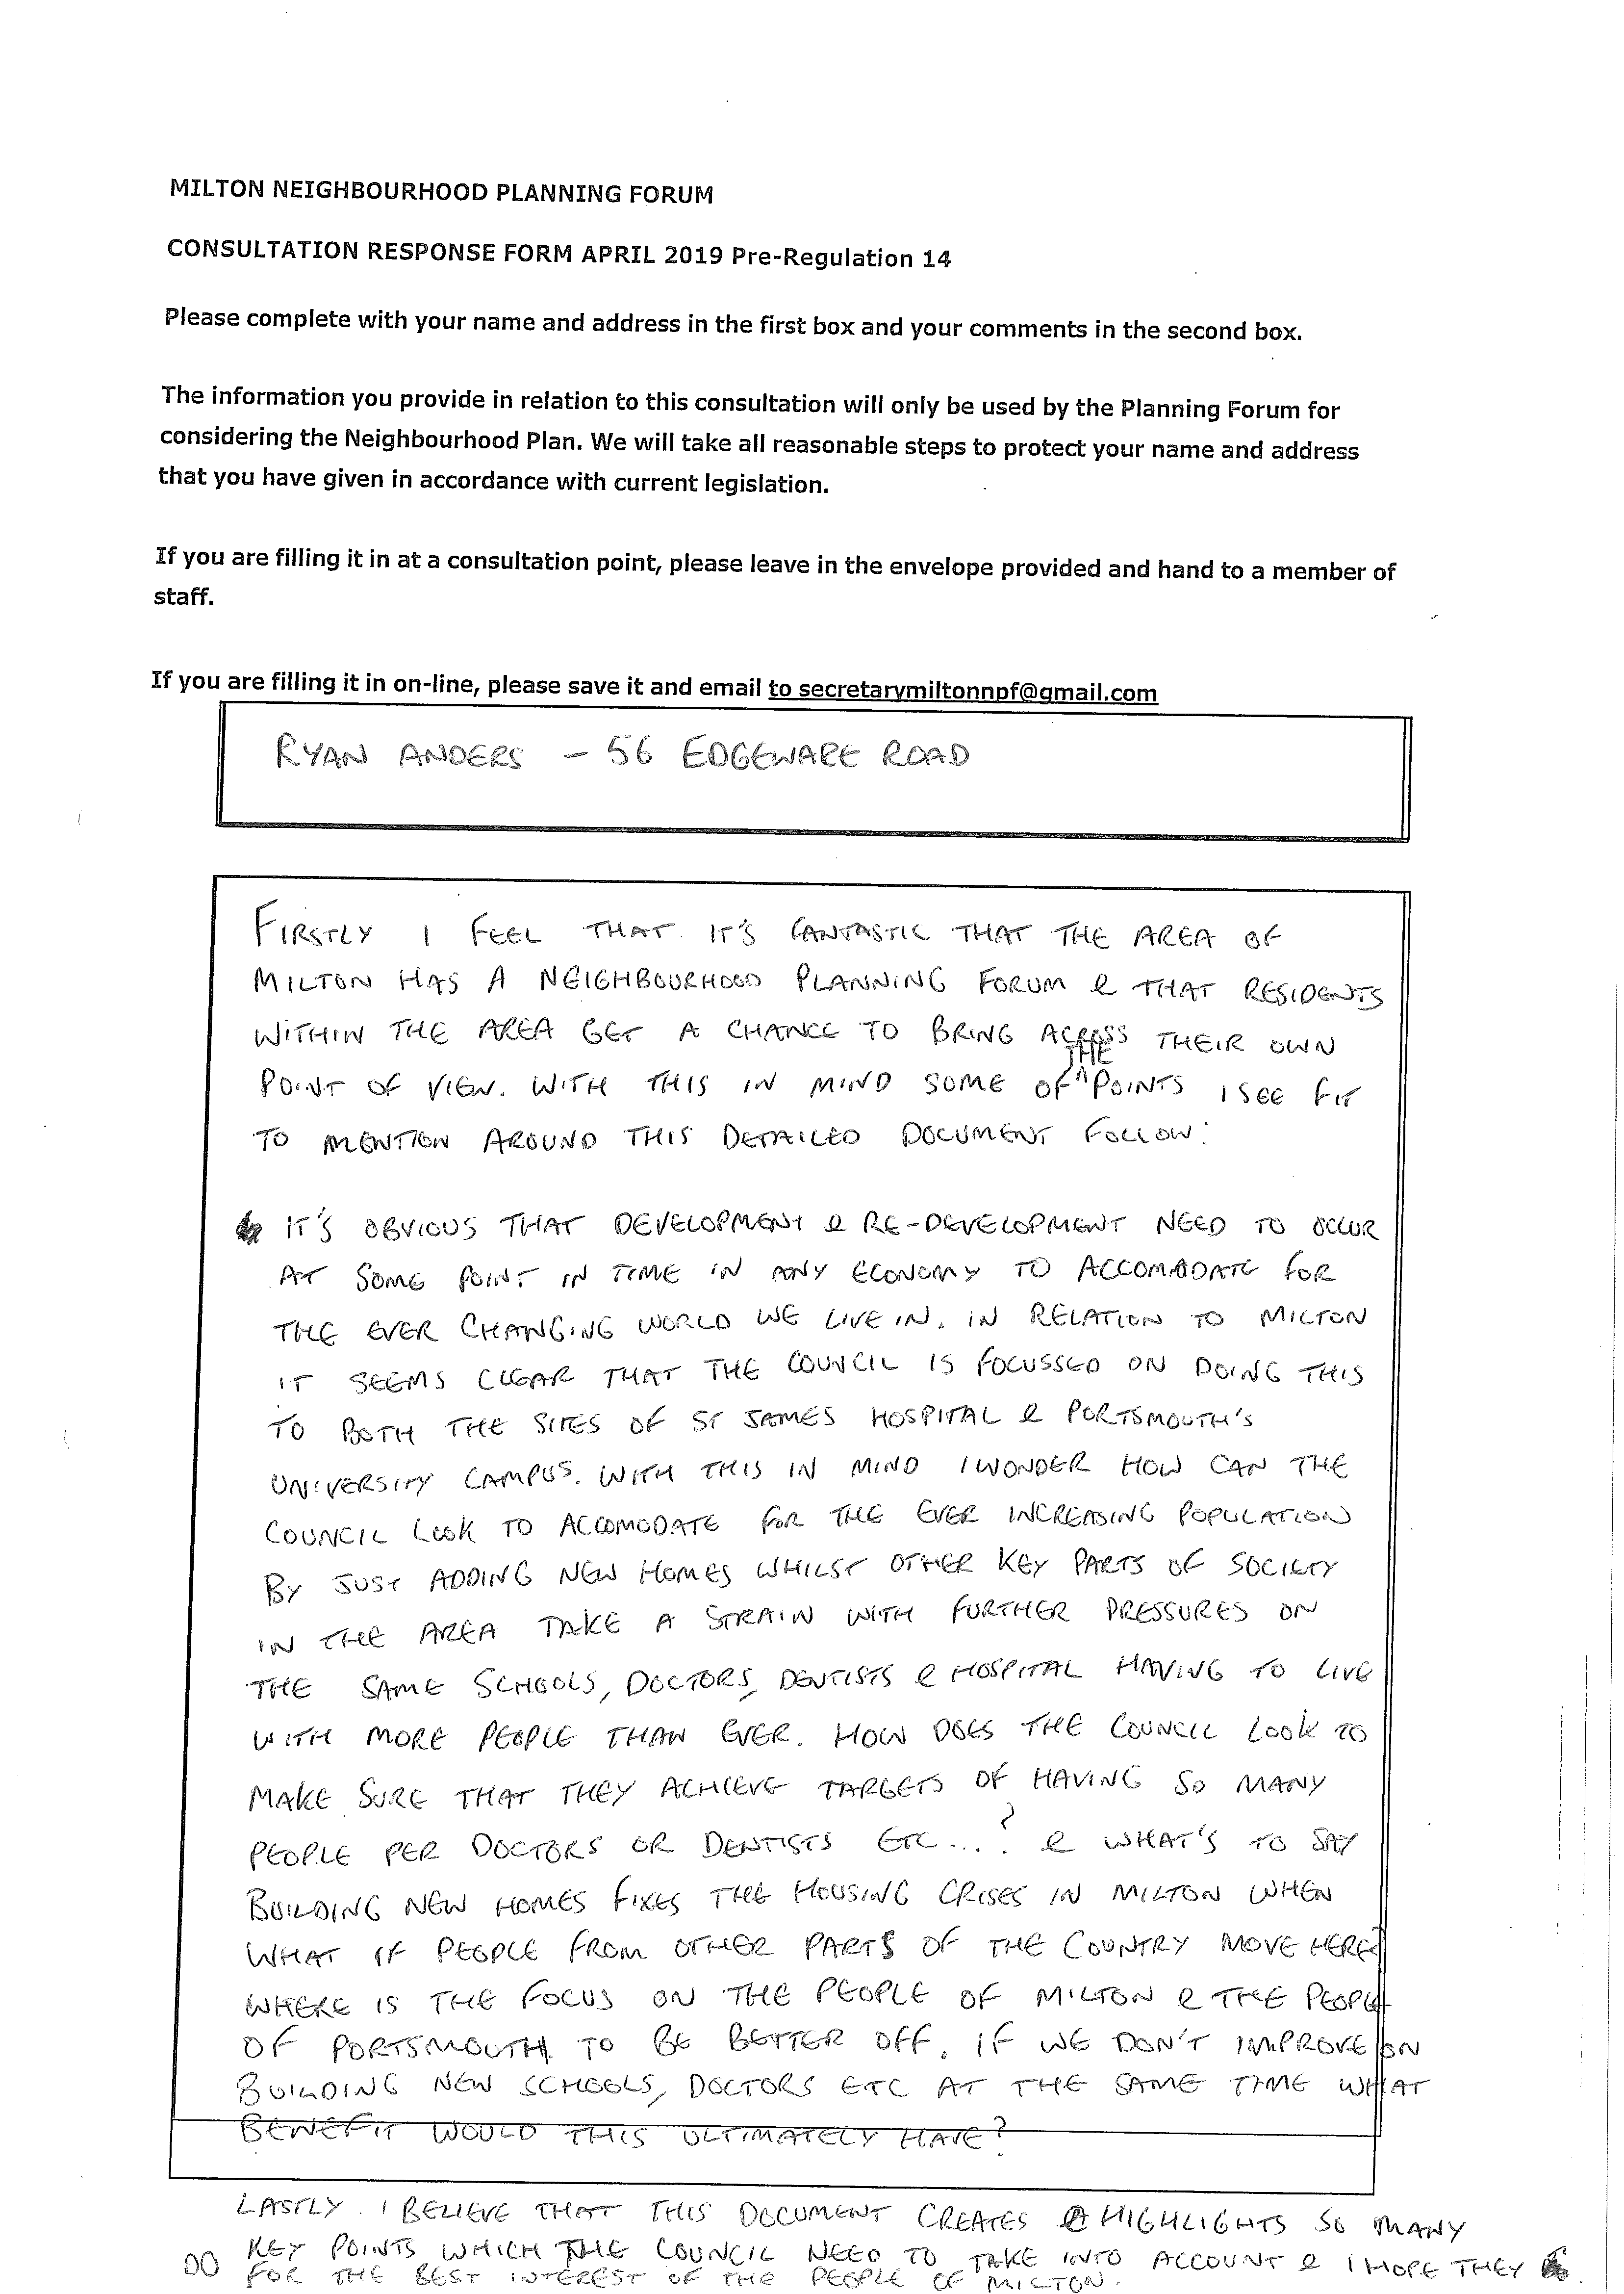 MILTON NEIGHBOURHOOD PLANNING FORUM
CONSULTATION RESPONSE FORM APRIL 2019 Pre-Regulation 14
Please complete with your name and address in the first box and your comments in the second box.
The information you provide in relation to this consultation will only be used by the Planning Forum for
considering the Neighbourhood Plan. We will take all reasonable steps to protect your name and address
that you have given in accordance with current legislation.
If you are filling it in at a consultation point, please leave in the envelope provided and hand to a member of
staff.
If you are filling it in on-line, please save it and email to secretarymiltonnpf@gmail.com
RYAN ANDERS - 56 EDGEWARE ROAD
FIRSTLY I FEEL THAT IT'S FANTASTIC THAT THE AREA OF
MILTON HAS A NEIGHBOURHOOD PLANNING FORUM & THAT RESIDENTS
WITHIN THE AREA GET A CHANCE TO BRING ACROSS THEIR OWN
POINT OF VIEW. WITH THIS IN MIND SOME OF THE POINTS I SEE FIT
TO MENTION AROUND THIS DETAILED DOCUMENT FOLLOW:
IT'S OBVIOUS THAT DEVELOPMENT & RE-DEVELOPMENT NEED TO OCCUR
AT SOME POINT IN TIME IN ANY ECONOMY TO ACCOMODATE FOR
THE EVER CHANGING WORLD WE LIVE IN. IN RELATION TO MILTON
IT SEEMS CLEAR THAT THE COUNCIL IS FOCUSSED ON DOING THIS
TO BOTH THE SITES OF ST JAMES HOSPITAL & PORTSMOUTH'S
UNIVERSITY CAMPUS. WITH THIS IN MIND I WONDER HOW CAN THE
COUNCIL LOOK TO ACCOMODATE FOR THE EVER INCREASING POPULATION
BY JUST ADDING NEW HOMES WHILST OTHER KEY PARTS OF SOCIETY
IN THE AREA TAKE A STRAIN WITH FURTHER PRESSURES ON
THE SAME SCHOOLS, DOCTORS, DENTISTS & HOSPITAL HAVING TO LIVE
WITH MORE PEOPLE THAN EVER. HOW DOES THE COUNCIL LOOK TO
MAKE SURE THAT THEY ACHIEVE TARGETS OF HAVING SO MANY
PEOPLE PER DOCTORS OR DENTISTS ETC...? & WHAT'S TO SAY
BUILDING NEW HOMES FIXES THE HOUSING CRISES IN MILTON WHEN
WHAT IF PEOPLE FROM OTHER PARTS OF THE COUNTRY MOVE HERE?
WHERE IS THE FOCUS ON THE PEOPLE OF MILTON & THE PEOPLE
OF PORTSMOUTH TO BE BETTER OFF. IF WE DON'T IMPROVE ON
BUILDING NEW SCHOOLS, DOCTORS ETC AT THE SAME TIME WHAT
BENEFIT WOULD THIS ULTIMATELY HAVE?
LASTLY. I BELIEVE THAT THIS DOCUMENT CREATES & HIGHLIGHTS SO MANY
KEY POINTS WHICH THE COUNCIL NEED TO TAKE INTO ACCOUNT & I HOPE THEY
DO FOR THE BEST INTEREST OF THE PEOPLE OF MILTON.